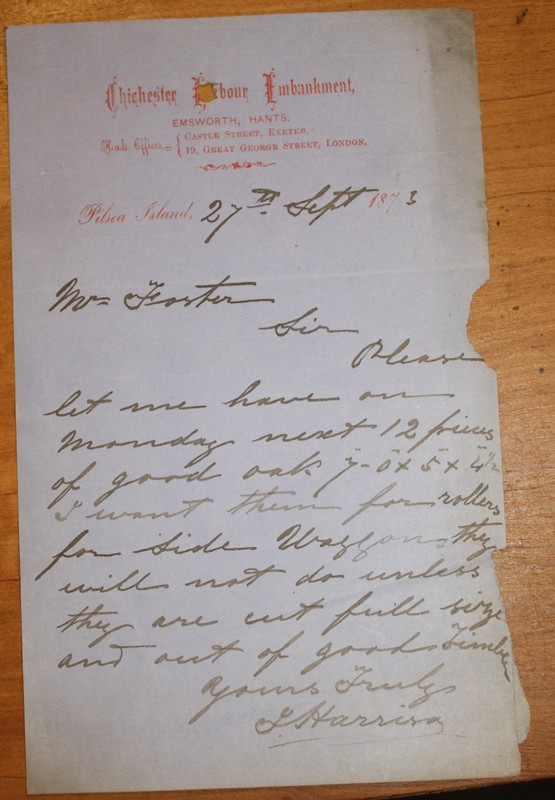 Chichester Harbour Embankment,
EMSWORTH, HANTS.
Head Office { CASTLE STREET, EXETER,
19, GREAT GEORGE STREET, LONDON,
Pilsea Island, 27th Sept 1873
Mr Foster
Sir
Please
let me have on
Monday next 12 pieces
of good oak 7-0 x 5 x 4½
I want them for rollers
for side Waggons they
will not do unless
they are cut full size
and out of good Timber
Yours Truly
J Harrison